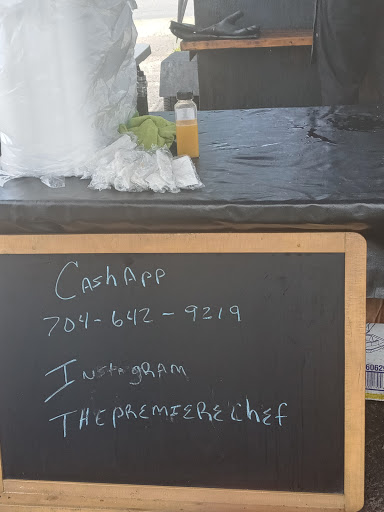 CashApp
704-642-9219
Instagram
THEPREMIERECHEF